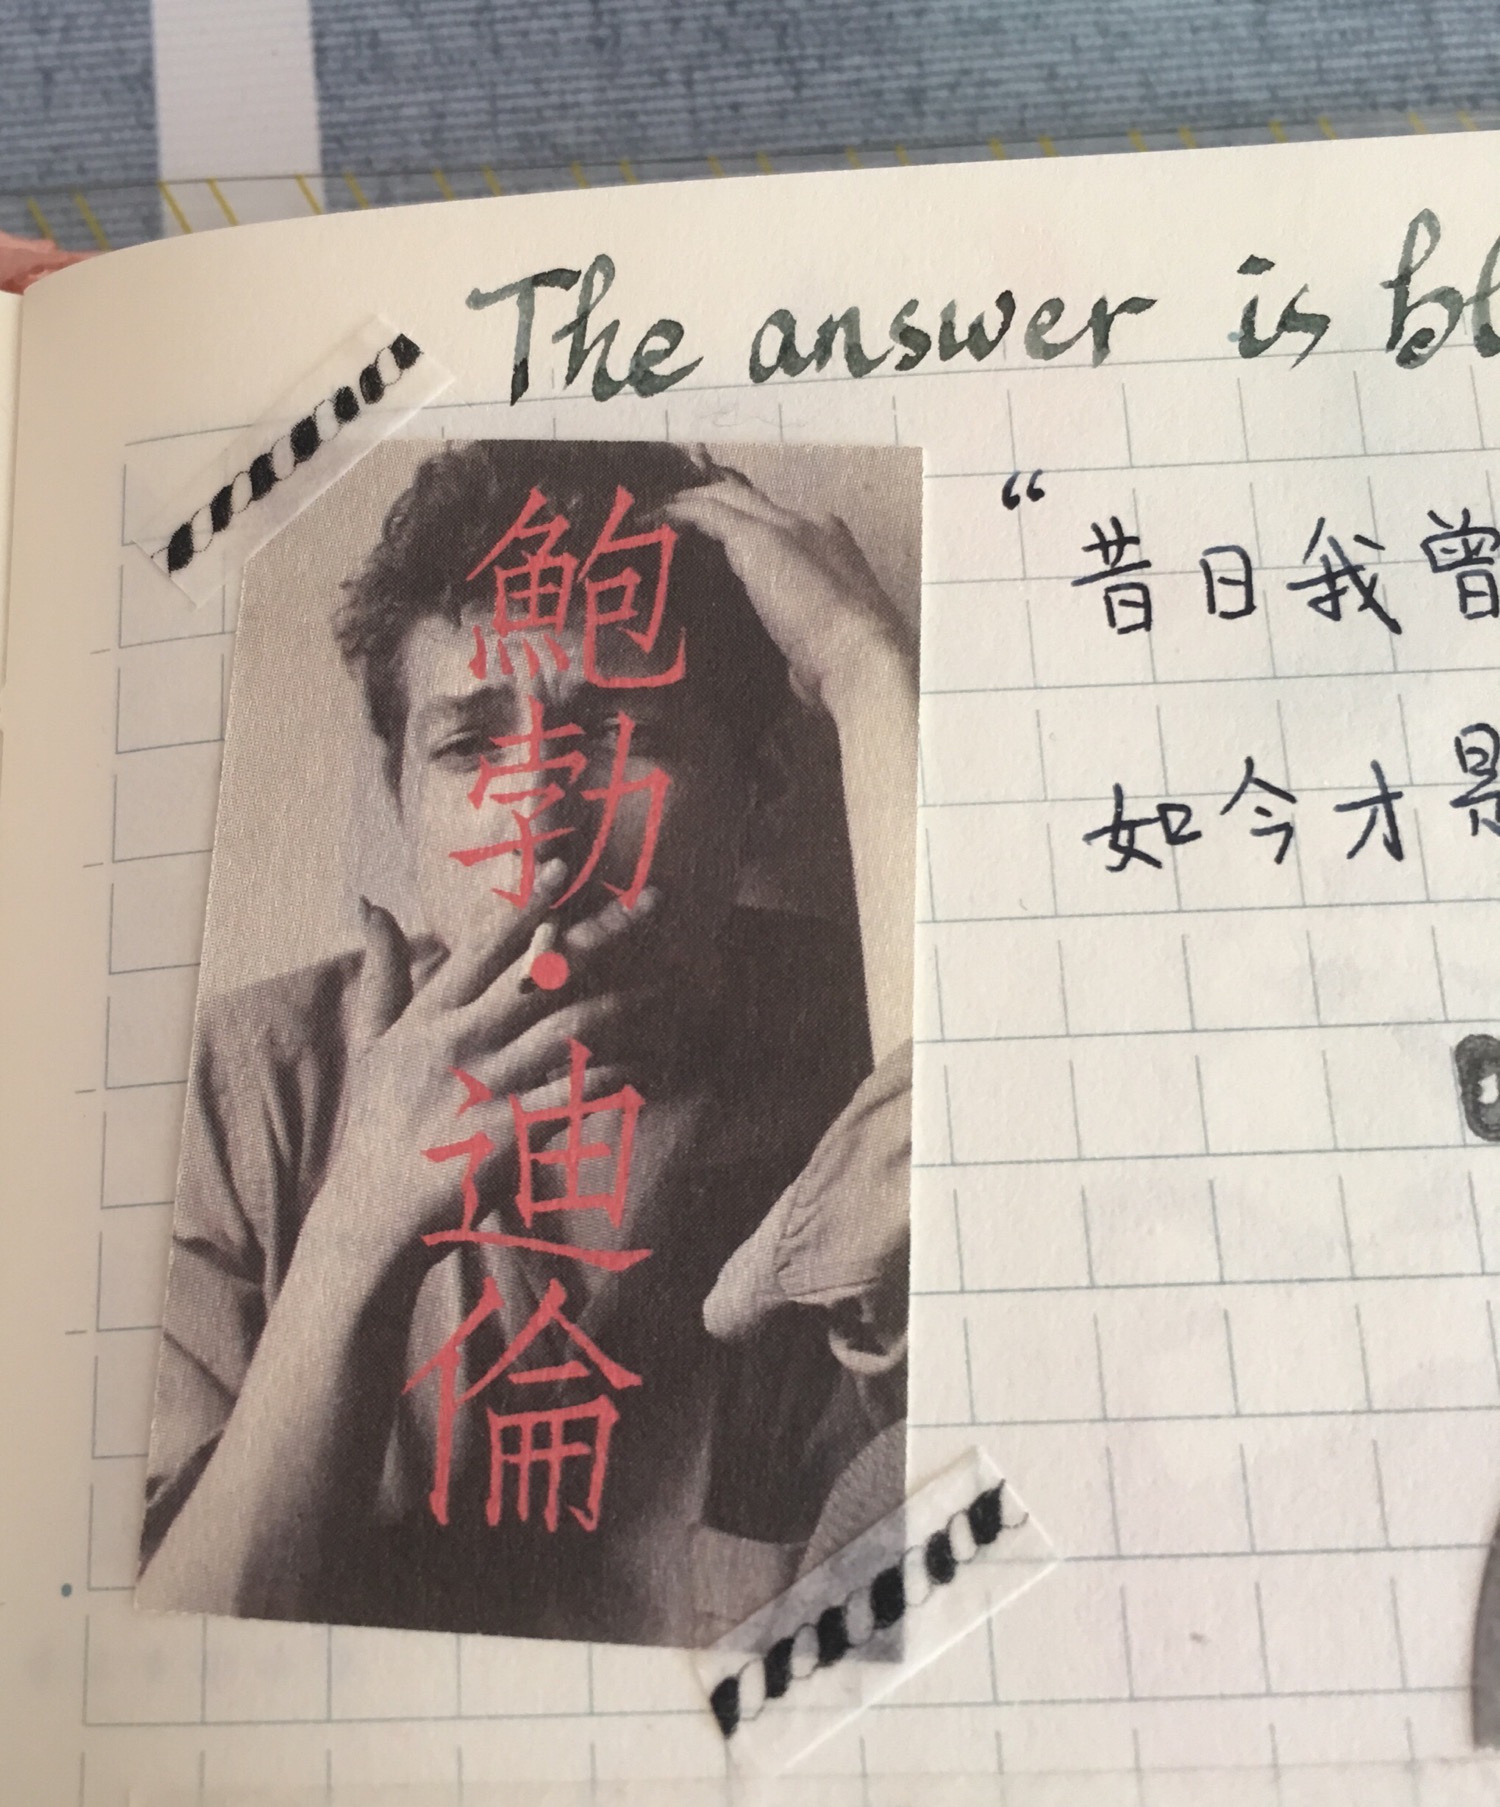 The answer is bl
鮑勃·迪倫
“昔日我曾
如今才是